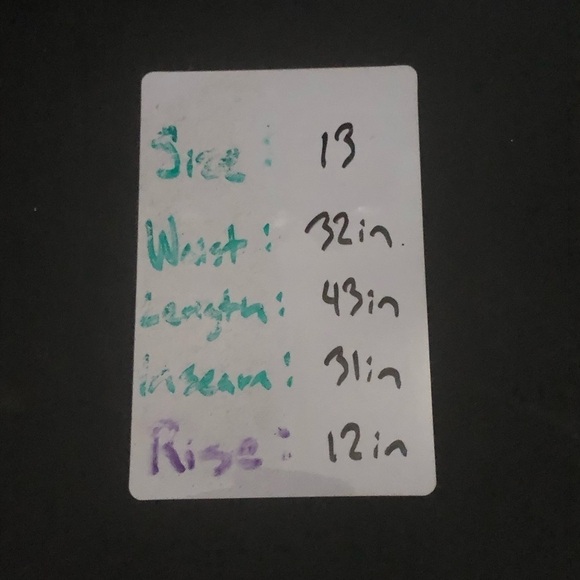 Size: 13
Waist: 32in.
Length: 43in
Inseam: 31in
Rise: 12in